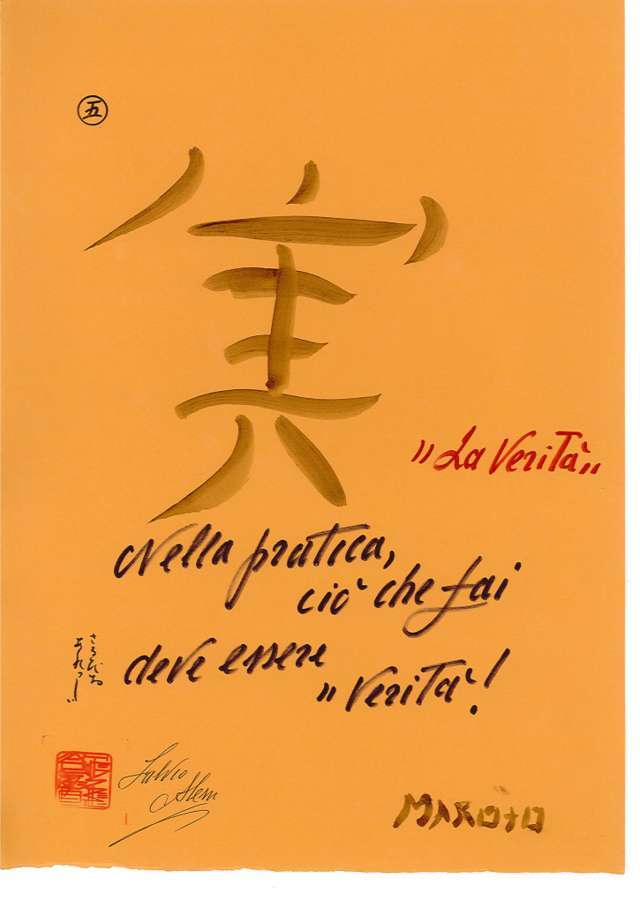 五
実
"La Verità"
Nella pratica,
ciò che fai
deve essere
"Verità!
MAROTO